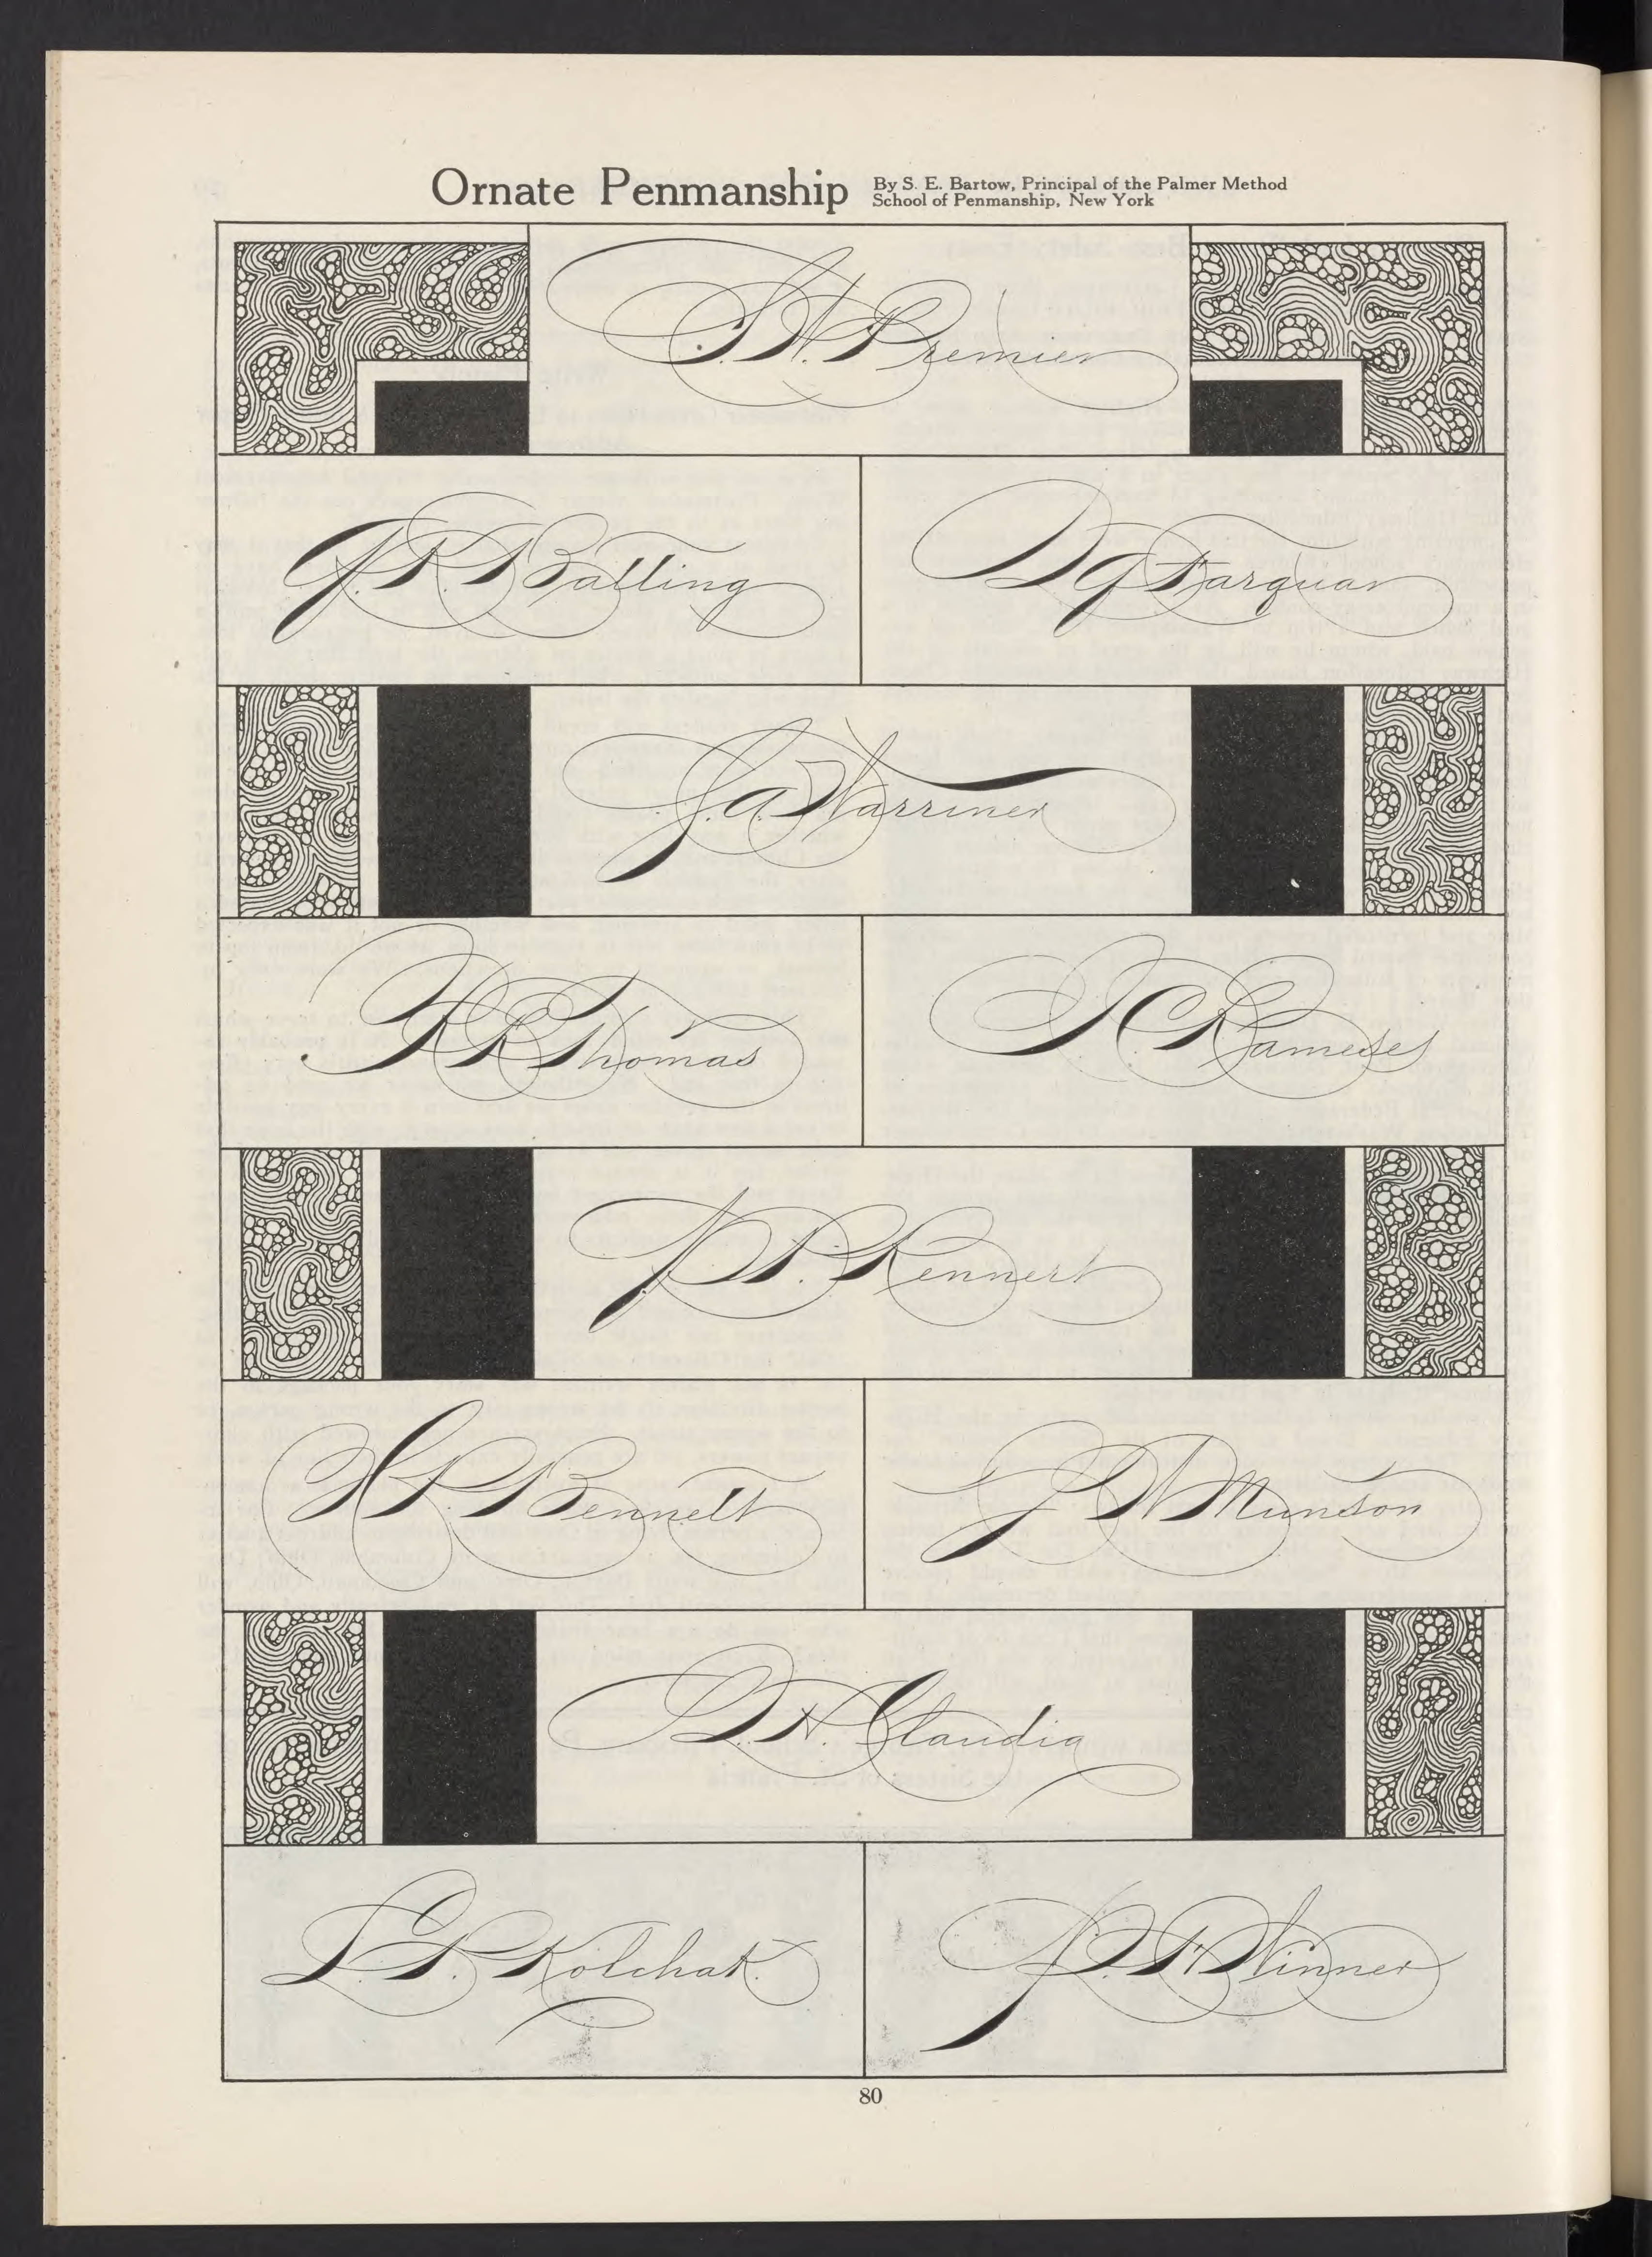 Ornate Penmanship
By S. E. Bartow, Principal of the Palmer Method
School of Penmanship, New York
Premier
Balling
D G Farquar
J. A. Warriner
Thomas
J C Rameses
J P. Rennert
H P. Bennett
J W Munson
D. H. Claudia
L. P. Kolchak.
J. H. Winner
80